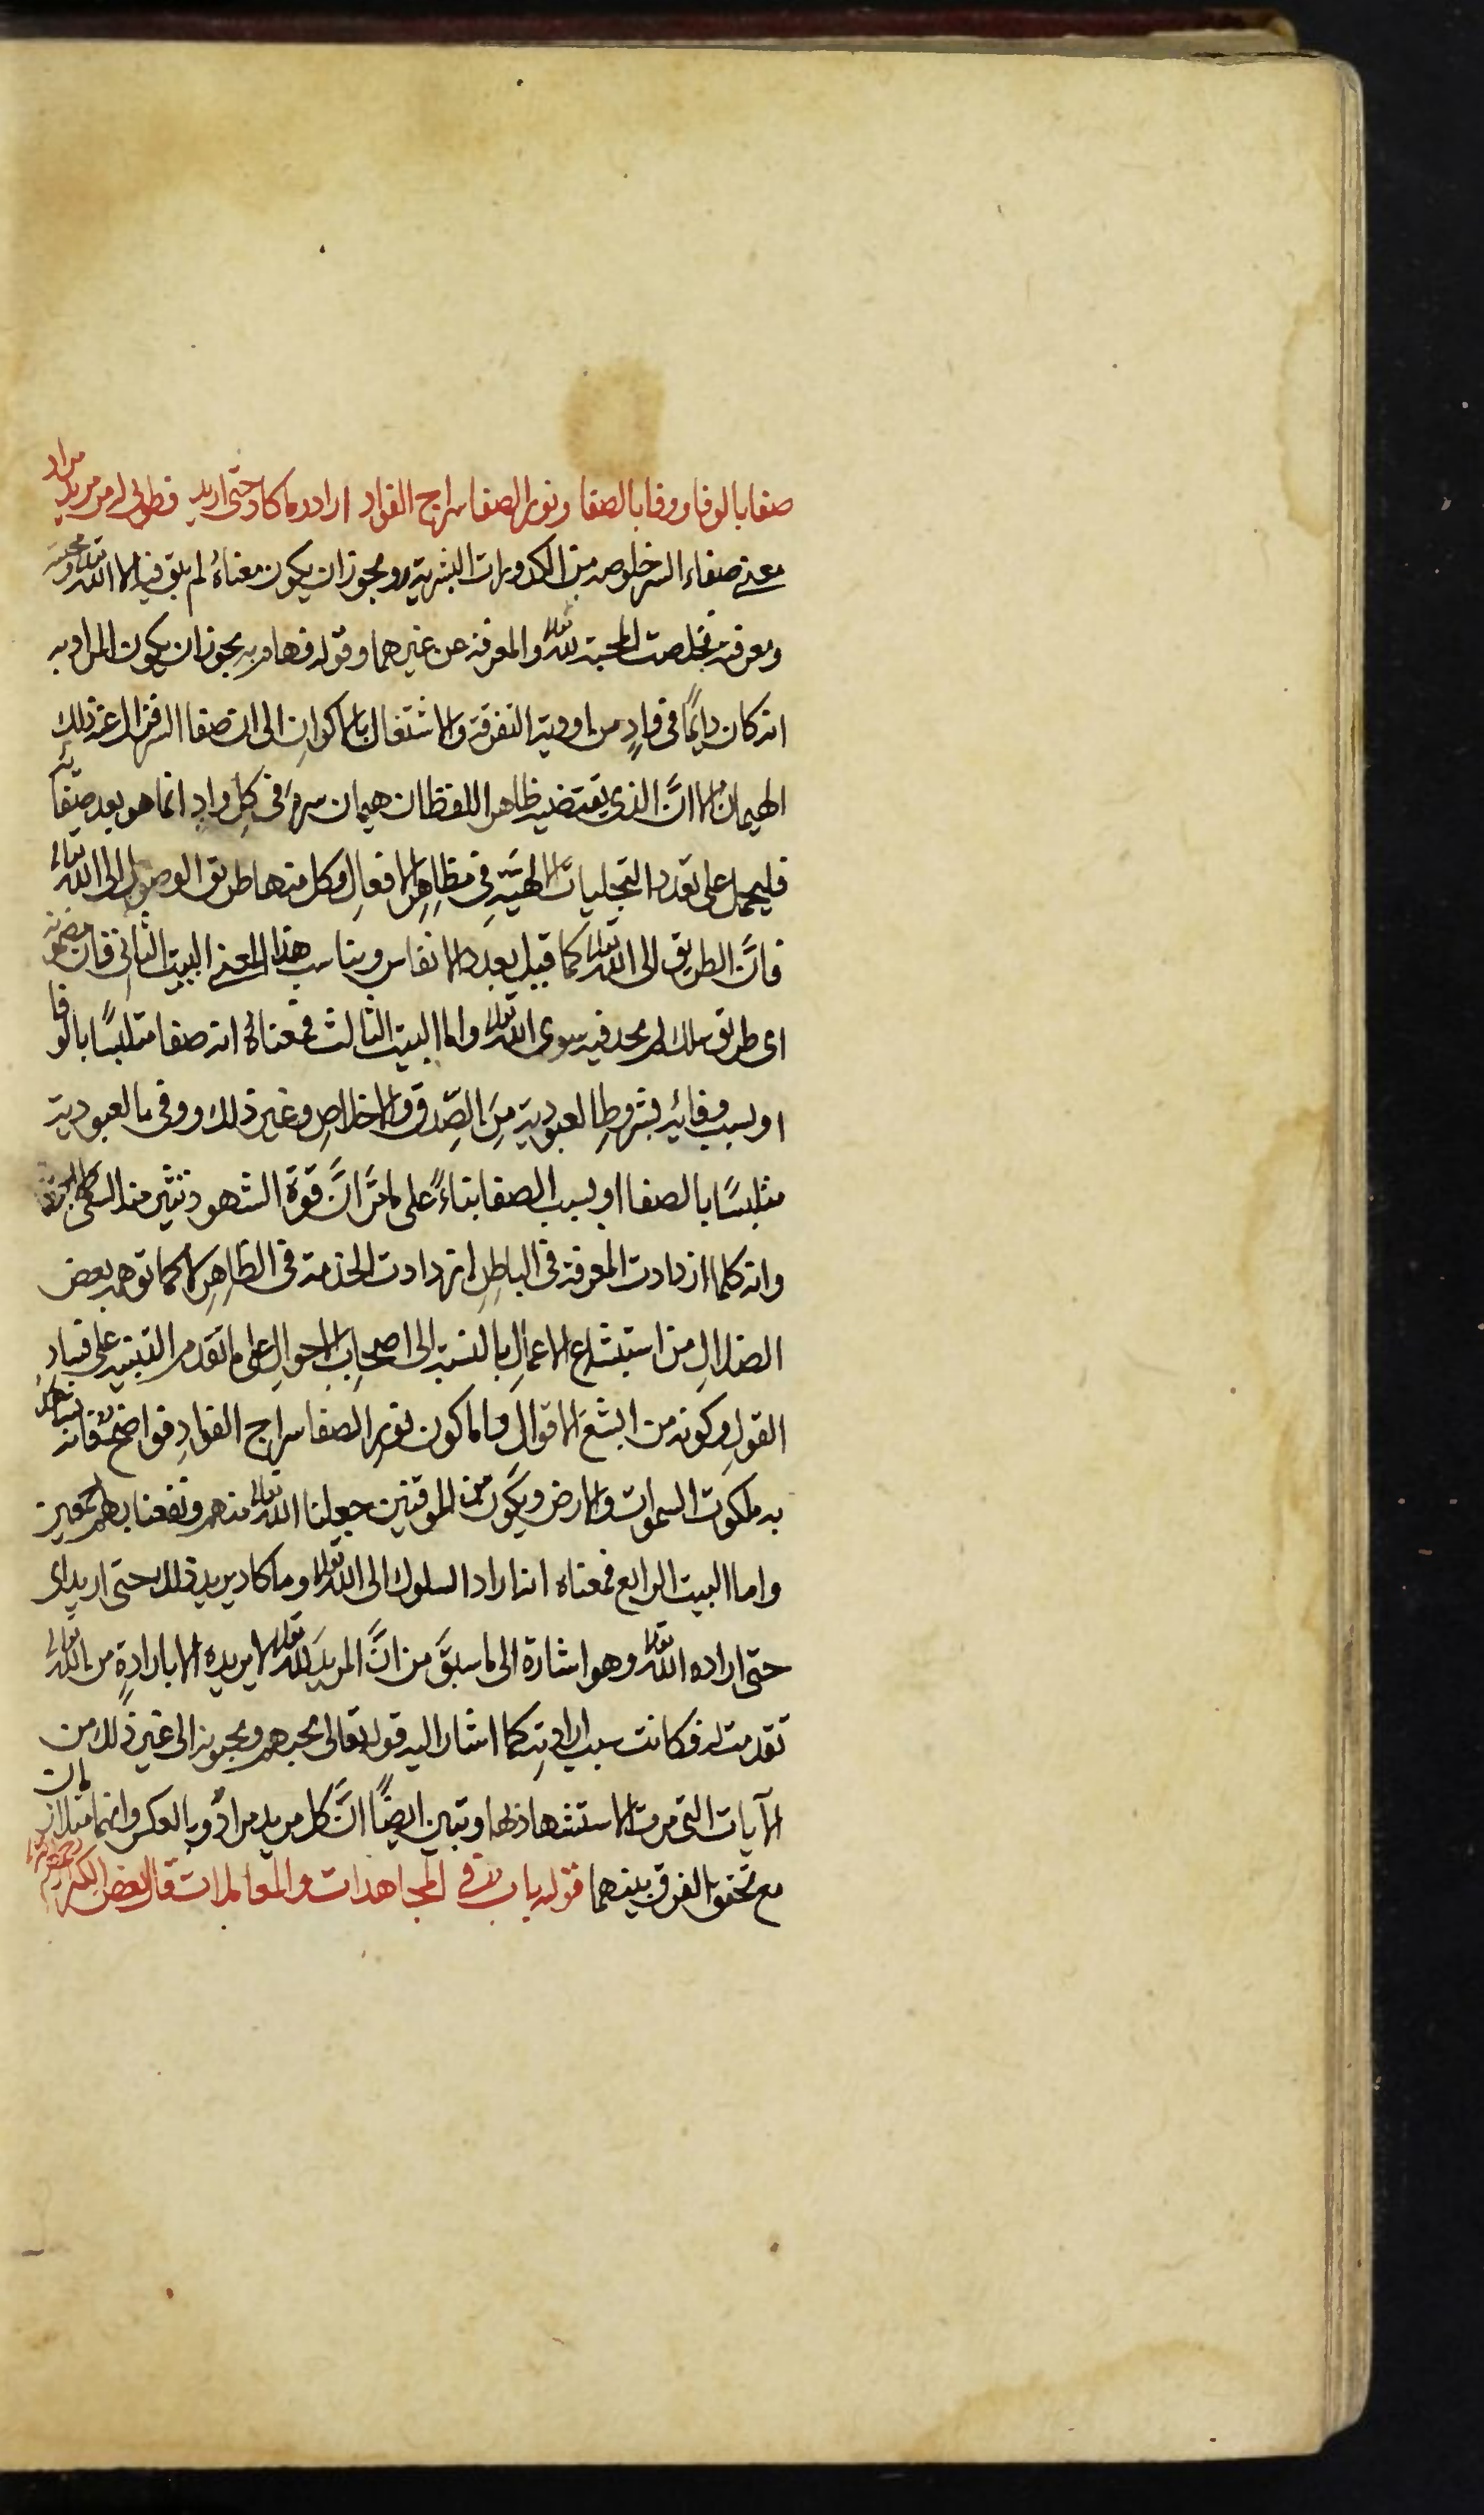 صفا بالوفا ووفا بالصفا ونور الصفا سراج الفواد اراد وما كاد حتى اريد فطوبى له من مريد مراد
معنى صفاء السر خلوصه من الكدورات البشرية ويجوز ان يكون معناه لم يبق فيه الا الله تعالى ومحبته
ومعرفته فخلصت المحبة لله تعالى والمعرفة عن غيرهما وقوله فهام به يجوز ان يكون المراد به
انه كان دايمًا في وادٍ من اودية التفرقة والاشتغال بالاكوان الى ان صفا السر فزال عنه ذلك
الهيمان الا انَّ الذي يقتضيه ظاهر اللفظ ان هيمان سره في كل واد انما هو بعد صفائه
فليحمل على تعدد التجليات الالهية في مظاهر الافعال وكل منها طريق الوصول الى الله تعالى
فانَّ الطريق الى الله تعالى كما قيل بعدد الانفاس ويناسب هذا المعنى البيت الثاني فان مضمونه
اى طريق سلك لم يجد فيه سوى الله تعالى واما البيت الثالث فمعناهُ انه صفا متلبسًا بالوفا
او بسبب وفائه بشروط العبودية من الصِّدق والاخلاص وغير ذلك ووفى بالعبودية
متلبسًا بالصفا او بسبب الصفا بناءً على ما مرَّ انَّ قوة الشهود تنشئ منه
وانه كلما ازدادت المعرفة في الباطن ازدادت الخدمة في الظاهر لا كما توهمه بعض
الضلال من استبشاع الاعمال بالنسبة الى اصحاب الاحوال على ما تقدم التنبيه على فساد
القول وكونه من ابشع الاقوال واما كون نور الصفا سراج الفواد فواضح فانه يشاهد
به ملكوت السموات والارض ويكون من الموقنين جعلنا الله تعالى منهم ونفعنا بهم اجمعين
واما البيت الرابع فمعناه انه اراد السلوك الى الله تعالى وما كاد يريد ذلك حتى اريد اى
حتى اراده الله تعالى وهو اشارة الى ما سبقَ من انَّ المريدَ لله تعالى لا يريده الا بارادةٍ من الله تعالى
تقدمت له فكانت سبب ارادته كما اشار اليه قوله تعالى يحبهم ويحبونه الى غير ذلك من
الآيات التي مرت الاستشهاد بها وتبين ايضًا انَّ كل مريد مراد وبالعكس وانهما متلازمان
مع تحقق الفرق بينهما قوله باب في المجاهدات والمعاملات قال بعض الكبراء